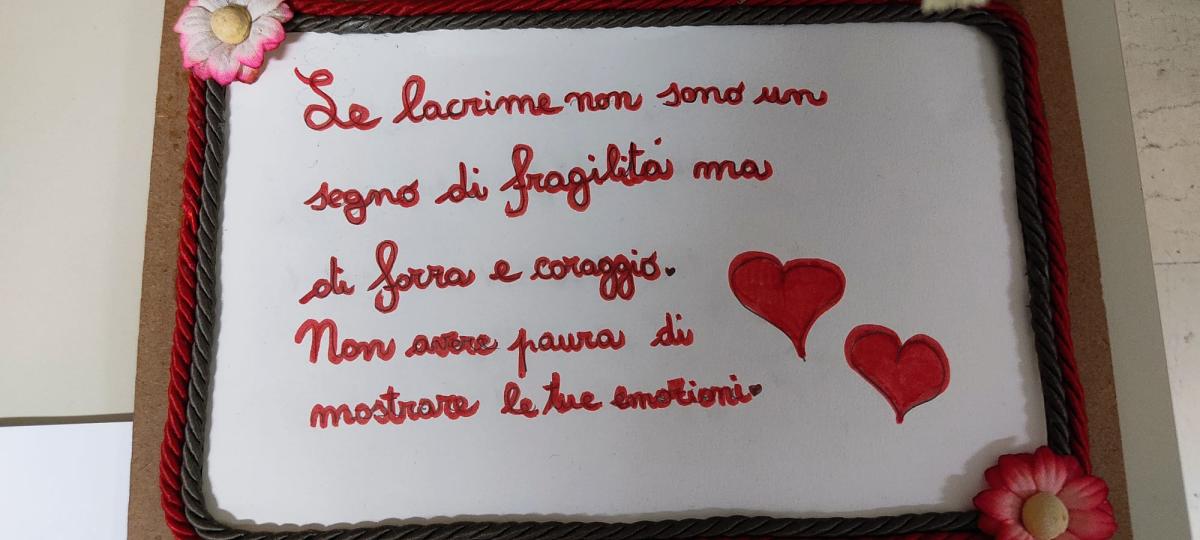 Le lacrime non sono un
segno di fragilitá ma
di forza e coraggio.
Non avere paura di
mostrare le tue emozioni.